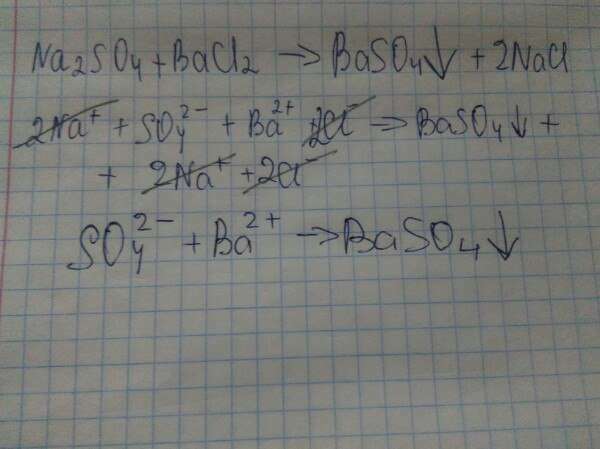 Na₂SO₄ + BaCl₂ → BaSO₄↓ + 2NaCl
2Na⁺ + SO₄²⁻ + Ba²⁺ 2Cl⁻ → BaSO₄↓ +
+ 2Na⁺ + 2Cl⁻
SO₄²⁻ + Ba²⁺ → BaSO₄↓